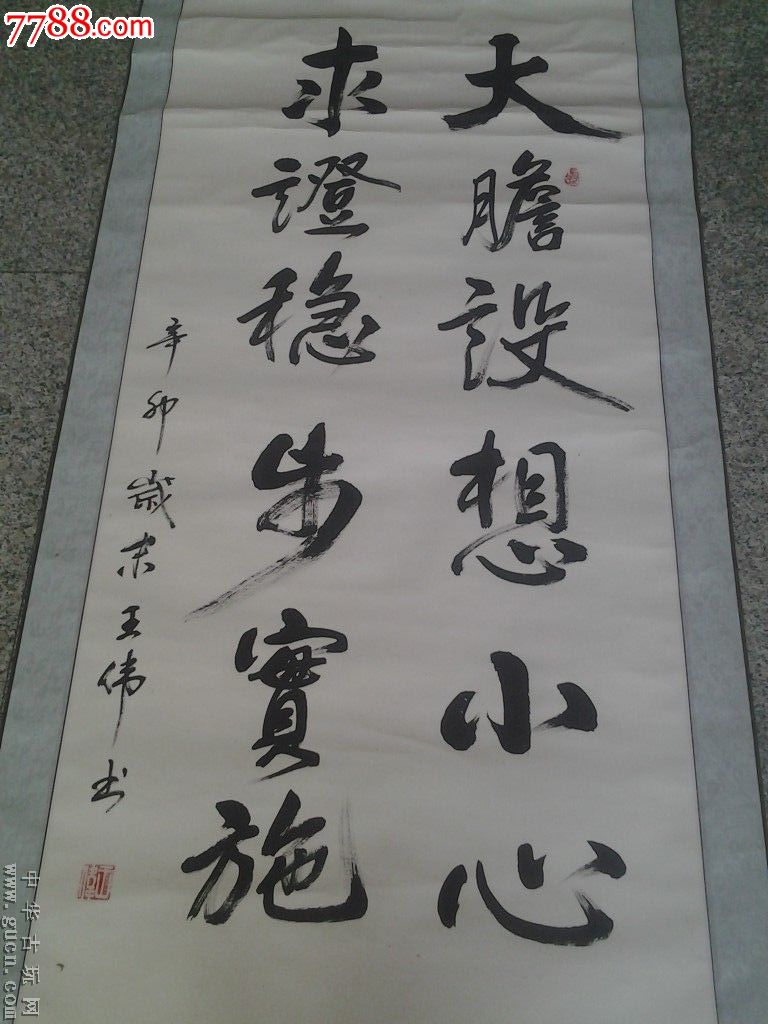 7788.com
大膽設想小心
求證穩步實施
辛卯歲末王伟书
中华古玩网
www.gucn.com